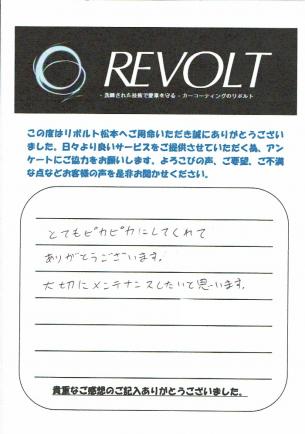 REVOLT
- 洗練された技術で愛車を守る - カーコーティングのリボルト
この度はリボルト松本へご用命いただき誠にありがとうござい
ました。日々より良いサービスをご提供させていただく為、アン
ケートにご協力をお願いします。よろこびの声、ご要望、ご不満
な点などお客様の声を是非お聞かせください。
とてもピカピカにしてくれて
ありがとうございます。
大切にメンテナンスしたいと思います。
貴重なご感想のご記入ありがとうございました。